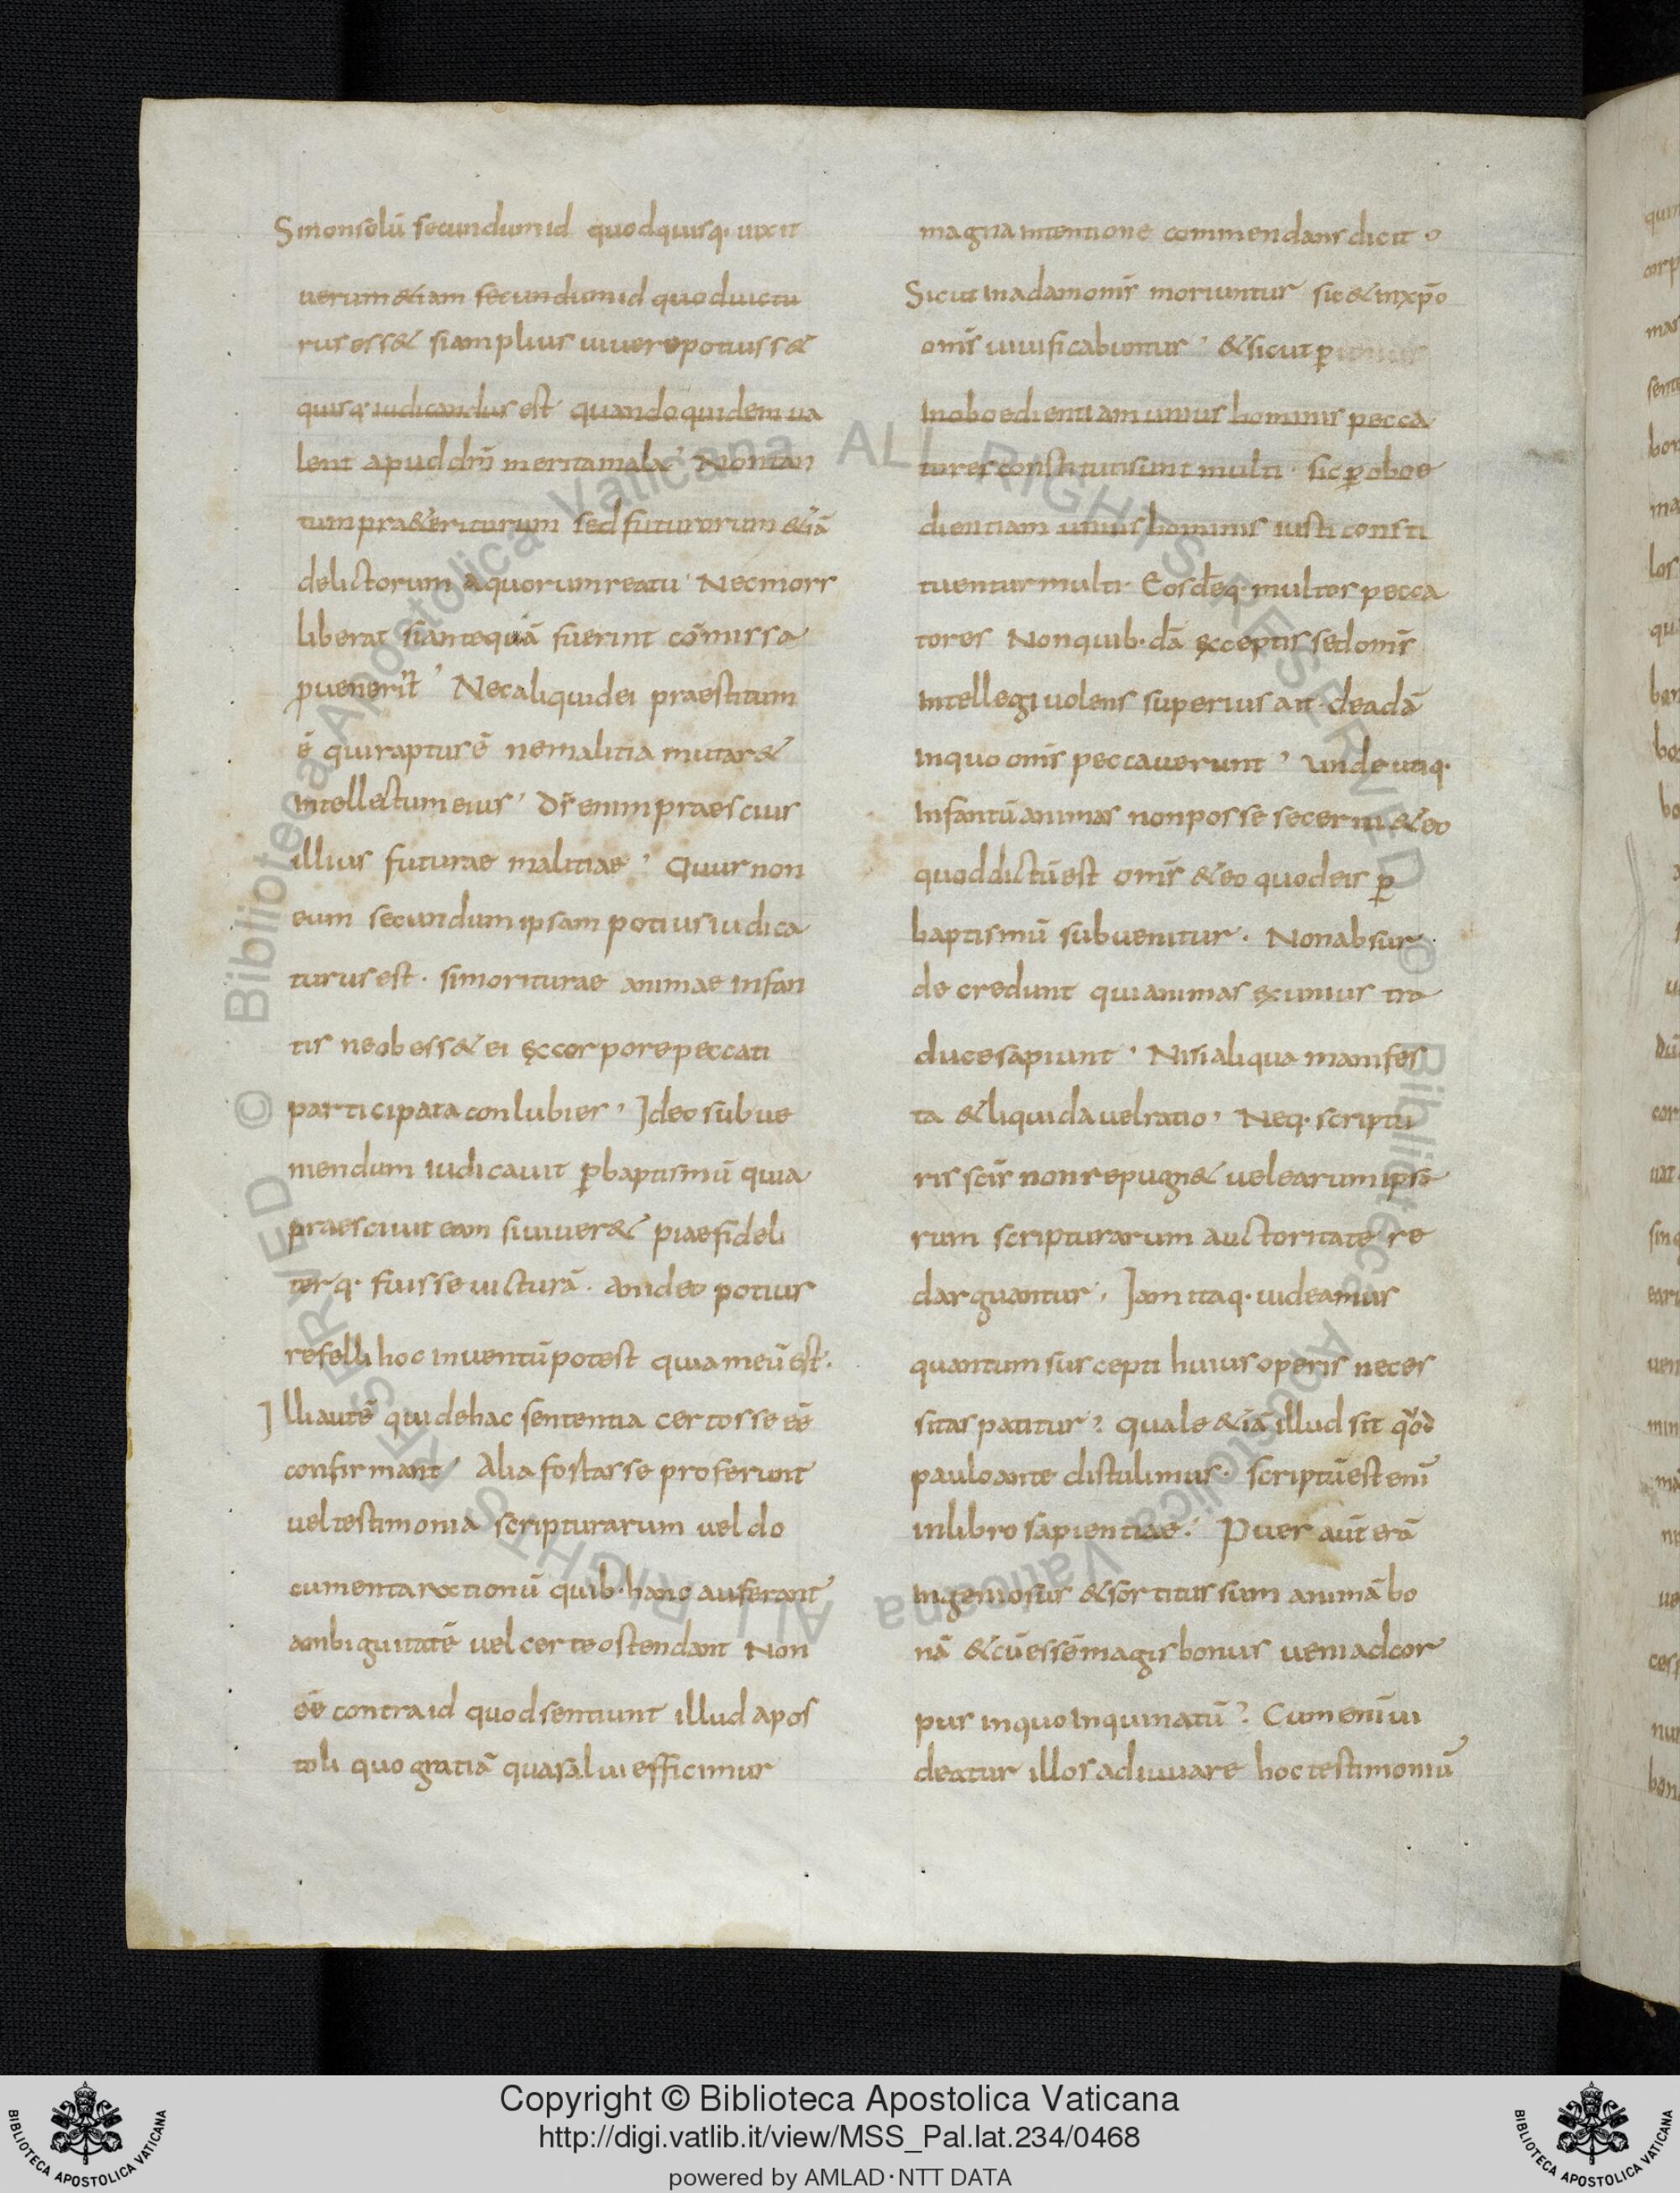 Sinonsolū secundumid quodquisq· uixit
uerum&iam secundumid quoduictu
rusess& siamplius uiuerepotuiss&
quisq· iudicandus est quandoquidem ua
lent apuddm̄ meritamala' Nontan
tumpra&eritorum sed futurorum &iā
delictorum Aquorumreatu· Necmors
liberat siantequā fuerint cōmissa
puenerit' Necaliquidei praestitum
ē quiraptusē nemalitia mutar&
intellectumeius' dr̄enimpraescius
illius futurae malitiae' Quurnon
eum secundumipsam potiusiudica
turusest· simoriturae animae infan
tis neobess& ei ęccorporepeccati
participatacon lubies' Ideosubue
niendum iudicauit pbaptismū quia
praesciuit eam siuiuer& piaefideli
terq· fuisseuicturā· Anideo potius
refelli hoc inuentūpotest quiameūest·
Illiautē quidehac sententia certosse ēē
confirmant' Alia fortasse proferunt
ueltestimonia scripturarum uel do
cumentarationū quib·hanc auferant
ambiguitatē uel certeostendant Non
ēē contraid quodsentiunt illud apos
toli quo gratiā quasalui efficimur
magnaintentione commendansdicit ·
Sicutinadamomīs moriuntur sic&inxp̄o
omīs uiuificabuntur' &sicut p
inoboedientiamunius hominis pecca
toresconstitutisunt multi· sicpoboe
dientiam unius hominis iusti consti
tuenturmulti· Eosdēq· multos pecca
tores Nonquib·dā ęcceptis sedomīs
intellegiuolens superius ait· deadā
inquo omīs peccauerunt' Undeutiq·
infantūanimas nonposse secerni&eo
quoddictūest omīs &eo quodeis p
baptismū subuenitur· Nonabsur
de credunt quianimas ęxunius tra
ducesapiunt' Nisialiqua manifes
ta &liquidauelratio' Neq· scriptu
ris scīs nonrepugn& uelearumipsa
rum scripturarum auctoritate re
darguantur· Iamitaq·uideamus
quantumsuscepti huiusoperis neces
sitaspatitur? quale &iā illud sit quod
pauloante distulimus· scriptūestenī
inlibrosapientiae· Puer aūt erā
ingeniosus &sortitussum animā bo
nā &cūessēmagisbonus ueniadcor
pus inquoinquinatū? Cumenī ui
deatur illosadiuuare hoctestimoniū